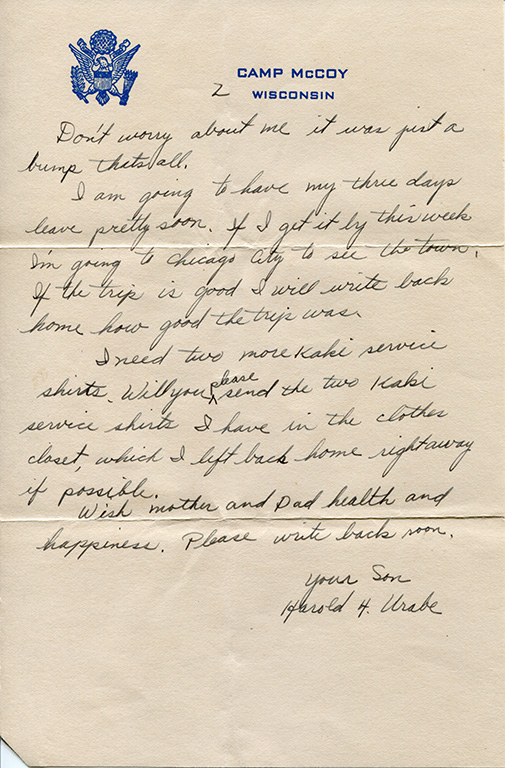 CAMP McCOY
WISCONSIN
2
Don't worry about me it was just a
bump thats all.
I am going to have my three days
leave pretty soon. If I get it by this week
I'm going to Chicago City to see the town.
If the trip is good I will write back
home how good the trip was.
I need two more Kaki service
shirts. Will you please send the two Kaki
service shirts I have in the clothes
closet, which I left back home right away
if possible.
Wish mother and Dad health and
happiness. Please write back soon.
Your Son
Harold H. Urabe